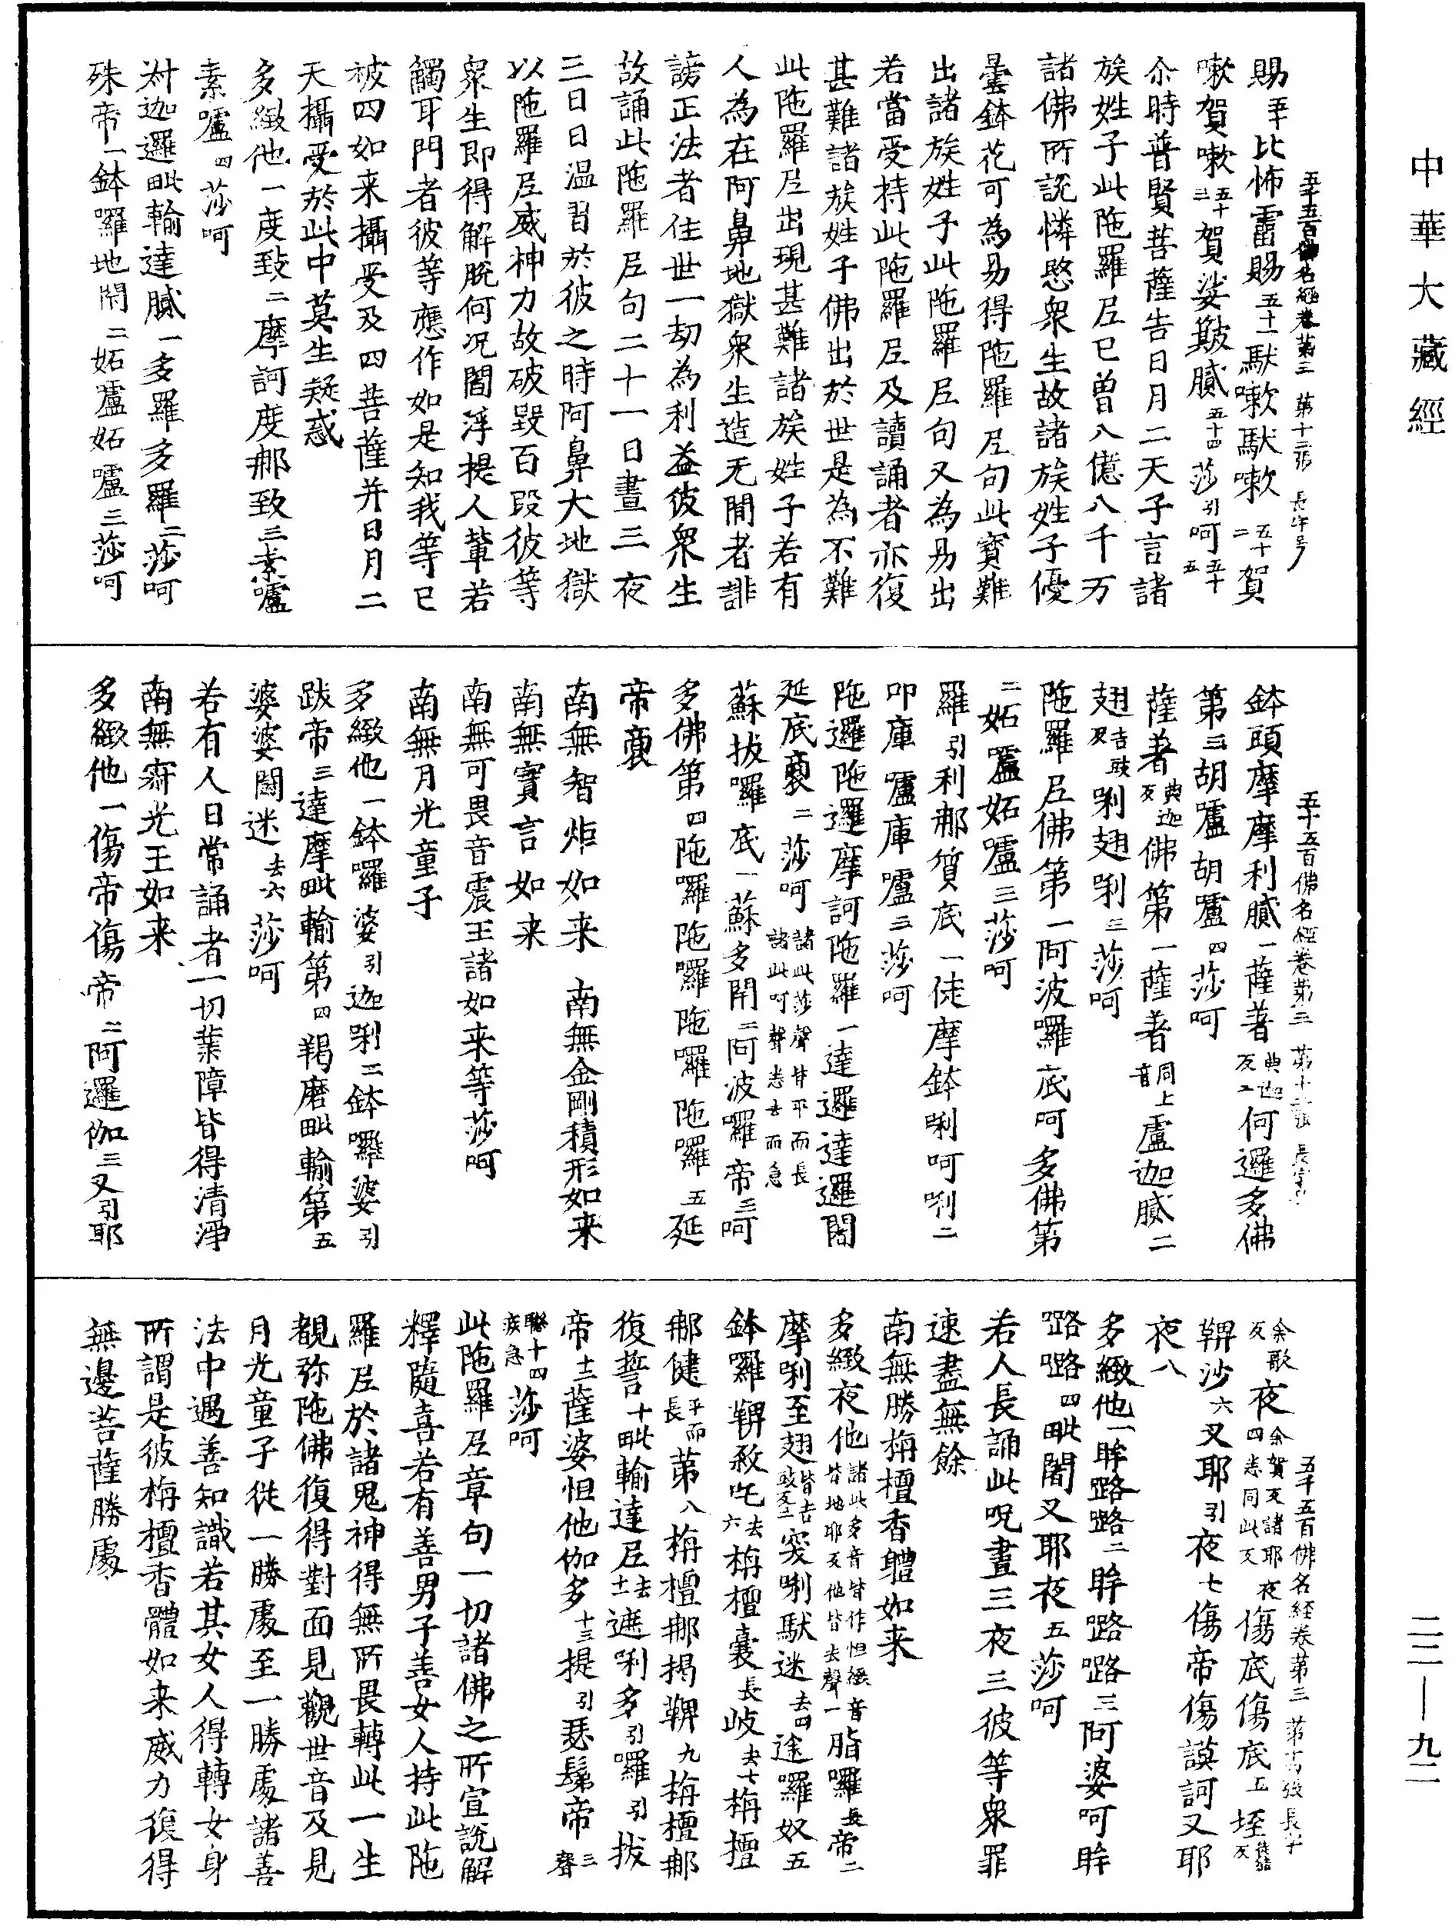 中華大藏經
五千五百佛名經卷第三 第十二張 長字号
賜五十比怖雷賜五十一馱嗽馱嗽五十二賀
嗽賀嗽五十三賀娑皺膩五十四莎引呵五十五
尒時普賢菩薩告日月二天子言諸
族姓子此陁羅尼已曾八億八千万
諸佛所說憐愍衆生故諸族姓子優
曇鉢花可為易得陁羅尼句此寶難
出諸族姓子此陁羅尼句又為易出
若當受持此陁羅尼及讀誦者亦復
甚難諸族姓子佛出於世是為不難
此陁羅尼出現甚難諸族姓子若有
人為在阿鼻地獄衆生造无間者誹
謗正法者住世一劫為利益彼衆生
故誦此陁羅尼句二十一日晝三夜
三日日温習於彼之時阿鼻大地獄
以陁羅尼威神力故破毀百段彼等
衆生即得解脫何況閻浮提人輩若
觸耳門者彼等應作如是知我等已
被四如来攝受及四菩薩并日月二
天攝受於此中莫生疑惑
多緻他一度致二摩訶度那致三素嚧
素嚧四莎呵
尌迦邏毗輸達膩一多羅多羅二莎呵
殊帝一鉢囉地閇二妬嚧妬嚧三莎呵
五千五百佛名經卷第三 第十三張 長字号
鉢頭摩摩利膩一薩著典迦反二何邏多佛
第三胡嚧胡嚧四莎呵
薩著典迦反佛第一薩著同上音盧迦膩二
翅吉豉反唎翅唎三莎呵
陁羅尼佛第一阿波羅底呵多佛第
二妬嚧妬嚧三莎呵
羅引利那質底一徒摩鉢唎呵唎二
叩庫嚧庫嚧三莎呵
陁邏陁邏摩訶陁羅一達邏達邏閣
延底裔二莎呵諸此莎聲甘平而長諸此呵聲悉去而急
蘇拔囉底一蘇多閇二阿波囉帝三呵
多佛第四陁囉陁囉陁囉陁囉五延
帝裔
南無智炬如来 南無金剛積形如来
南無寶言如来
南無可畏音震王諸如来等莎呵
南無月光童子
多緻他一鉢囉婆引迦唎二鉢囉婆引
跋帝三達摩毗輸第四羯磨毗輸第五
婆婆闘迷去六莎呵
若有人日常誦者一切業障皆得清淨
南無齋光王如来
多緻他一傷帝傷帝二阿邏伽三叉引耶
五千五百佛名經卷第三 第十四張 長字
余歌反夜四余賀反諸耶夜悉同此反傷底傷底五垤徒結反
鞞沙六叉耶引夜七傷帝傷謨訶叉耶
夜八
多緻他一眸路路二眸路路三阿婆呵眸
路路四毗闍叉耶夜五莎呵
若人長誦此呪晝三夜三彼等衆罪
速盡無餘
南無勝栴檀香軆如来
多緻夜他諸此多音皆作怛緻音皆地耶反他皆去聲一脂囉長帝二
摩唎至翅皆吉豉反三突唎馱迷去四途羅奴五
鉢羅鞞敘吒去六栴檀裹長岐去七栴檀
那健平而長第八栴檀那揭鞞九栴檀那
復誓十毗輸達尼去十一遮唎多引囉引拔
帝十二薩婆怛他伽多十三提引瑟鬄帝三聲
聯十四疾急莎呵
此陁羅尼章句一切諸佛之所宣說解
釋隨喜若有善男子善女人持此陁
羅尼於諸鬼神得無所畏轉此一生
覩弥陁佛復得對面見觀世音及見
月光童子從一勝處至一勝處諸善
法中遇善知識若其女人得轉女身
所謂是彼栴檀香體如来威力復得
無邊菩薩勝處
二二—九二